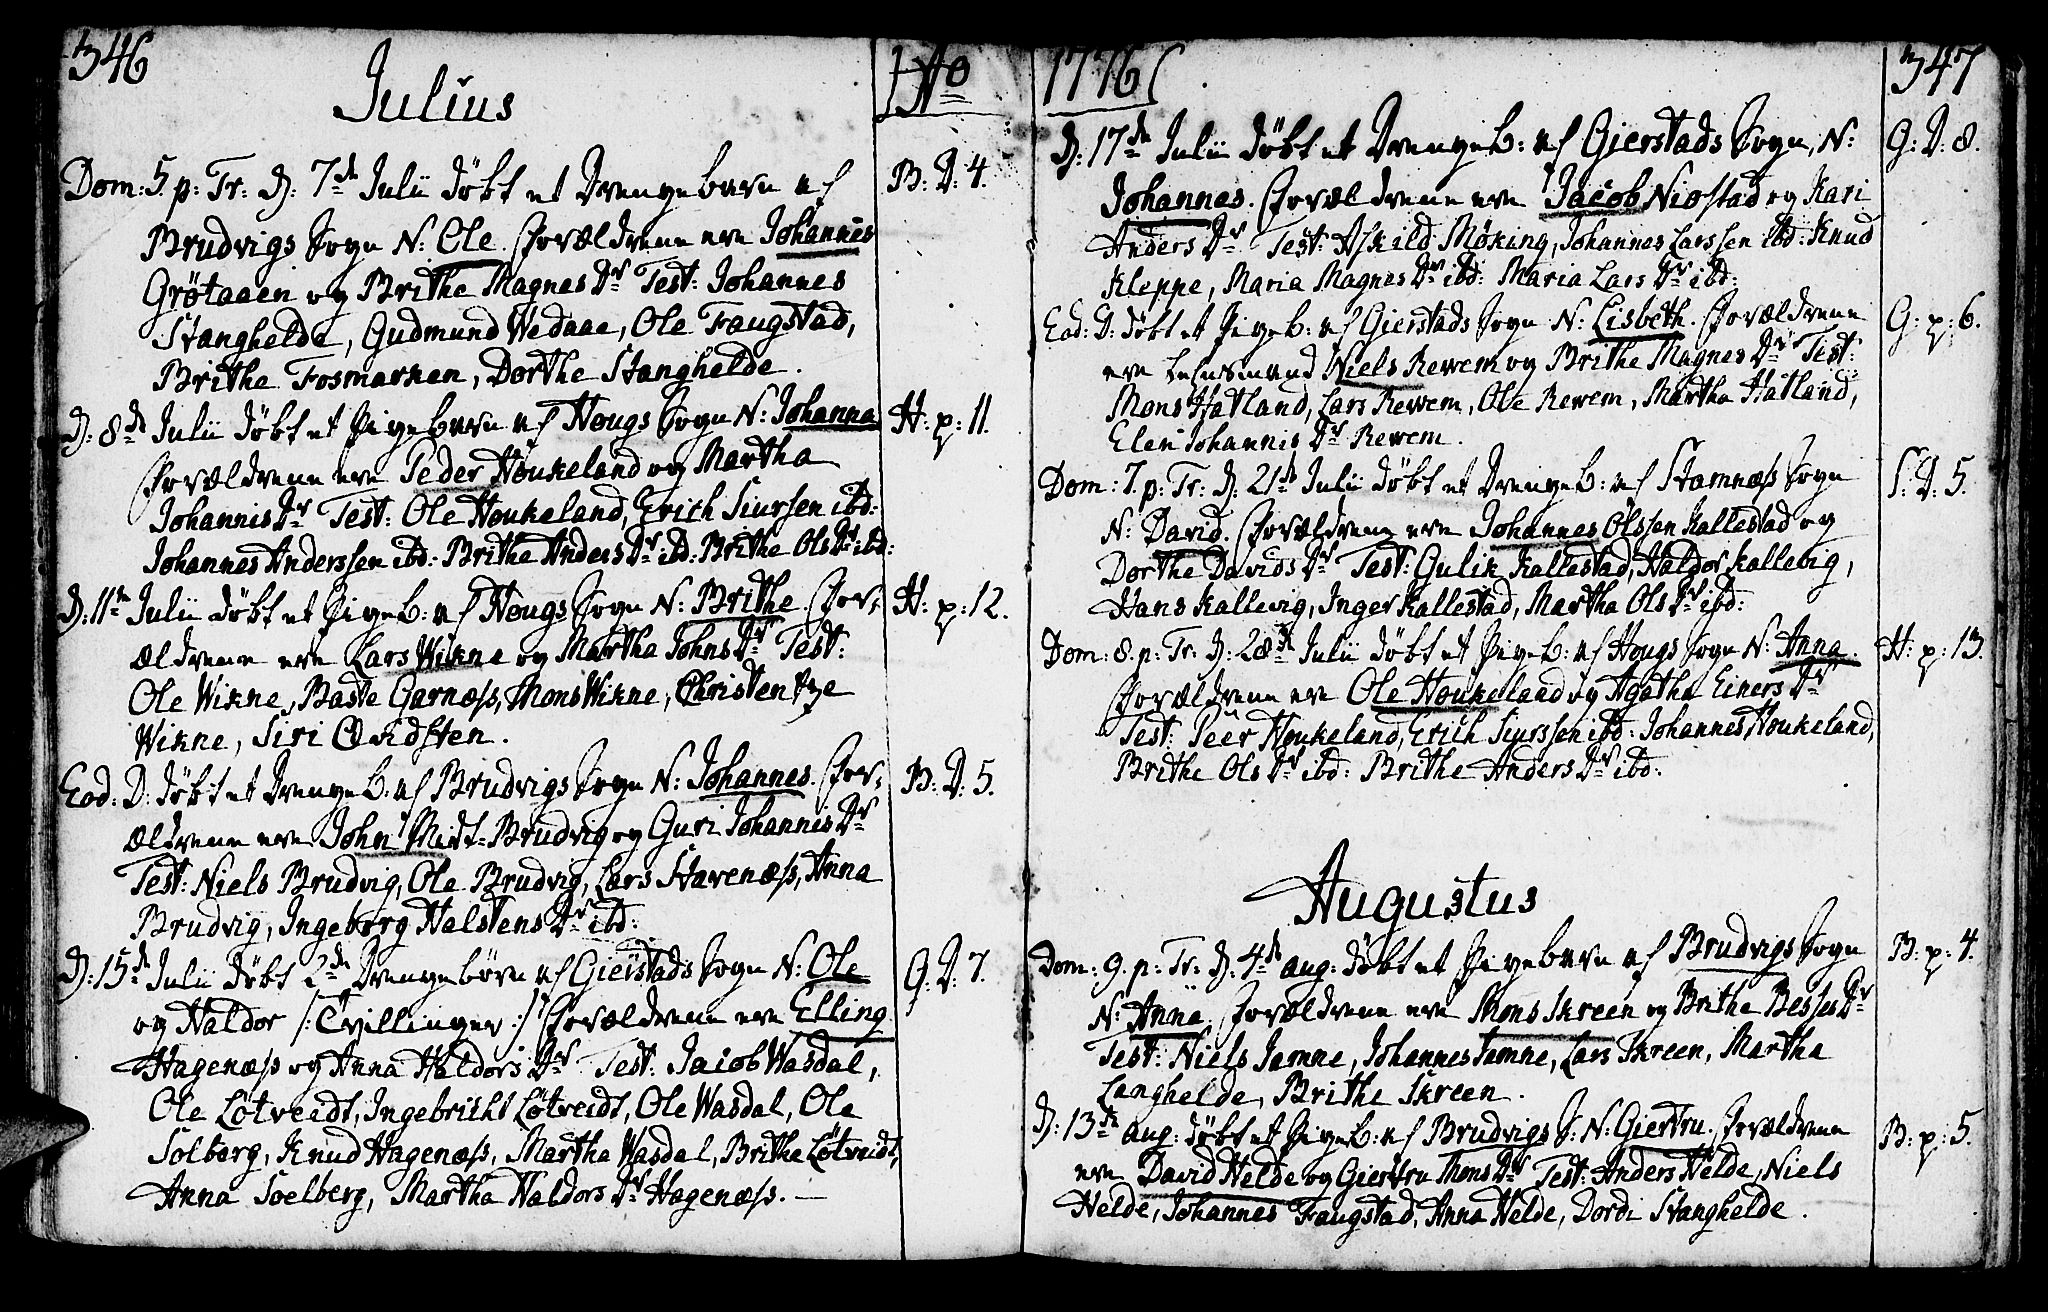 346
Julius
Ao
Dom: 5. p: Tr: d: 7de Julii døbt et Drengebarn af
B: D: 4.
Brudvigs Sogn N: Ole Forældrene ere Johannes
Grøtaaen og Brithe Magnes Dr Test: Johannes
Stanghelde, Gudmund Wedaae, Ole Faugstad,
Brithe Fosmarken, Dorthe Stanghelde.
d: 8de Julii døbt et Pigebarn af Hougs Sogn N: Johanna
H: p: 11.
Forældrene ere Peder Houkeland og Martha
Johannis Dr Test: Ole Houkeland, Erich Siursen ibd:
Johannes Anderssen ibd: Brithe Anders Dr ibd: Brithe Ols Dr ibd:
d: 11te Julii døbt et Pigeb: af Hougs Sogn N: Brithe For-
H: p: 12.
ældrene ere Lars Wikne og Martha Johns Dr Test:
Ole Wikne, Baste Garnæss, Mons Wikne, Christentze
Wikne, Siri Qvidsten.
Eod: D: døbt et Drengeb: af Brudvigs Sogn N: Johannes. For-
B: D: 5.
ældrene ere John Midt-Brudvig og Guri Johannis Dr
Test: Niels Brudvig, Ole Brudvig, Lars Stavenæss, Anna
Brudvig, Ingeborg Halstens Dr ibd:
d: 15de Julii døbt 2de Drengebørn af Gierstads Sogn N: Ole
G: D: 7.
og Haldor /: Tvillinger :/ Forældrene ere Elling
Hagenæss og Anna Haldors Dr Test: Jacob Wasdal,
Ole Løtveidt, Ingebricht Løtveidt, Ole Wasdal, Ole
Solberg, Knud Hagenæss, Martha Wasdal, Brithe Løtveidt,
Anna Soelberg, Martha Haldors Dr Hagenæss. —
1776
347
d: 17de Julii døbt et Drengeb: af Gierstads Sogn, N:
G: D: 8.
Johannes. Forældrene ere Jacob Niostad og Kari
Anders Dr Test: Askild Møking, Johannes Larssen ibd: Knud
Kleppe, Maria Magnes Dr ibd: Maria Lars Dr ibd:
Eod: D: døbt et Pigeb: af Gierstads Sogn N: Lisbeth. Forældrene
G: p: 6.
ere Lehnsmand Niels Rewem og Brithe Magnes Dr Test:
Mons Hatland, Lars Rewem, Ole Rewem, Martha Hatland,
Eleri Johannis Dr Rewem.
Dom: 7. p: Tr: d: 21de Julii døbt et Drengeb: af Stamnæss Sogn
S: D: 5.
N: David. Forældrene ere Johannes Olssen Kallestad og
Dorthe Davids Dr Test: Gulik Kallestad, Haldor Kallevig,
Hans Kallevig, Inger Kallestad, Martha Ols Dr ibd:
Dom: 8. p: Tr: d: 28de Julii døbt et Pigeb: af Hougs Sogn N: Anna.
H: p: 13.
Forældrene ere Ole Houkeland og Agatha Einers Dr
Test: Peer Houkeland, Erich Siurssen ibd: Johannes Houkeland,
Brithe Ols Dr ibd: Brithe Anders Dr ibd:
Augustus
Dom: 9. p: Tr: d: 4de aug: døbt et Pigebarn af Brudvigs Sogn
B: p: 4.
N: Anna. Forældrene ere Mons Skreen og Brithe Besses Dr
Test: Niels Jamne, Johannes Jamne, Lars Skreen, Martha
Langhelde, Brithe Skreen.
d: 13de aug: døbt et Pigeb: af Brudvigs S: N: Giertru. Forældrene
B: p: 5.
ere David Helde og Giertru Mons Dr Test: Anders Helde, Niels
Helde, Johannes Faugstad, Anna Helde, Dordi Stanghelde.